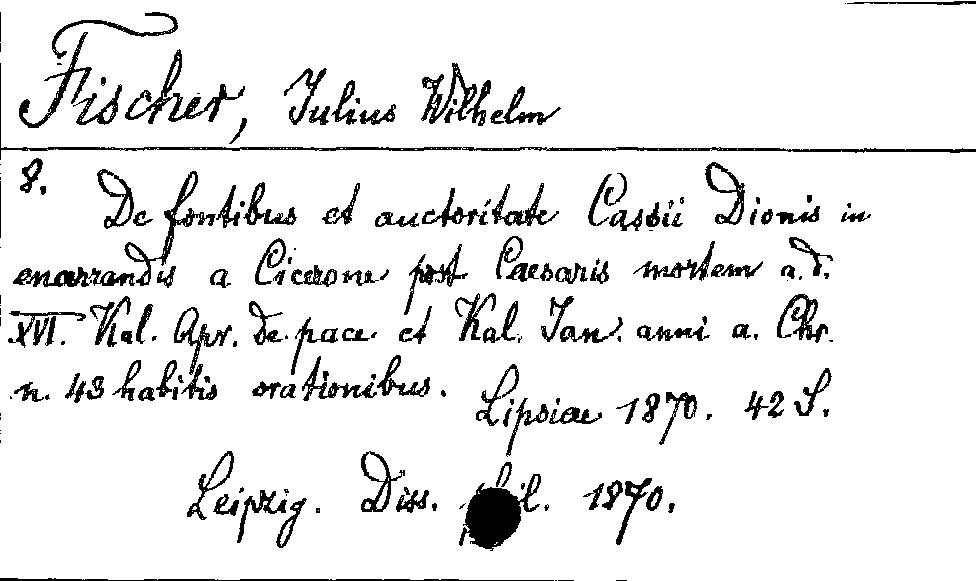 Fischer, Julius Wilhelm
8.
De fontibus et auctoritate Cassii Dionis in
enarrandis a Cicerone post Caesaris mortem a. d.
XVI. Kal. Apr. de pace et Kal. Jan. anni a. Chr.
n. 43 habitis orationibus.
Lipsiae 1870. 42 S.
Leipzig. Diss. phil. 1870.